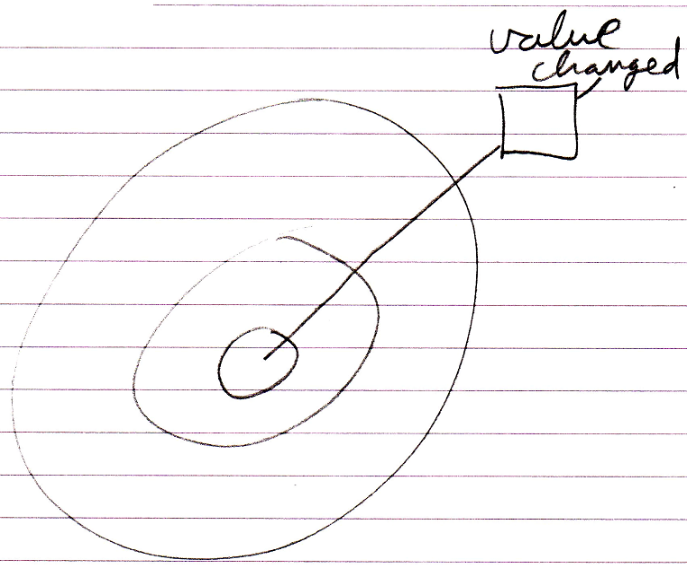 value
changed